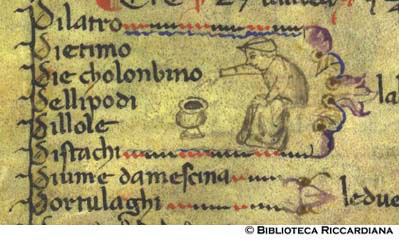 Pilatro
Pietimo
Pie cholonbino
Pellipodi
Pillole
Pistachi
damescina
Portulaghi
la
ledue
© BIBLIOTECA RICCARDIANA